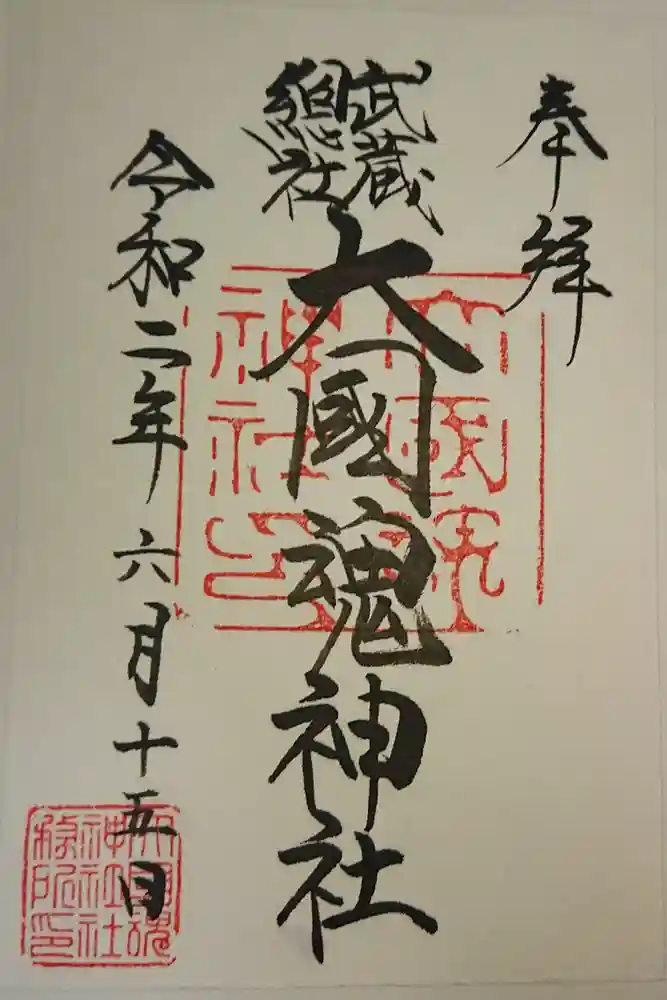 奉拝
武蔵
總社
大國魂神社
令和二年六月十五日
大國魂
神社
印
大國魂
神社社
務所印